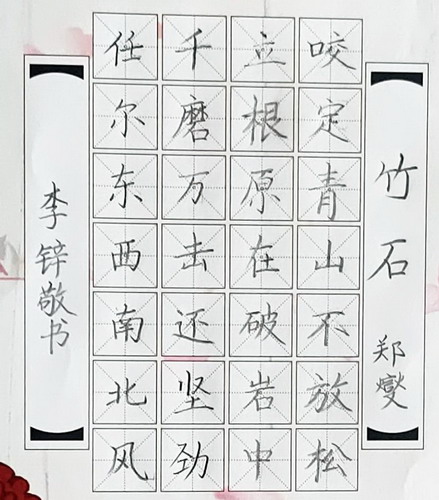 竹石
郑燮
咬定青山不放松
立根原在破岩中
千磨万击还坚劲
任尔东西南北风
李锌敬书